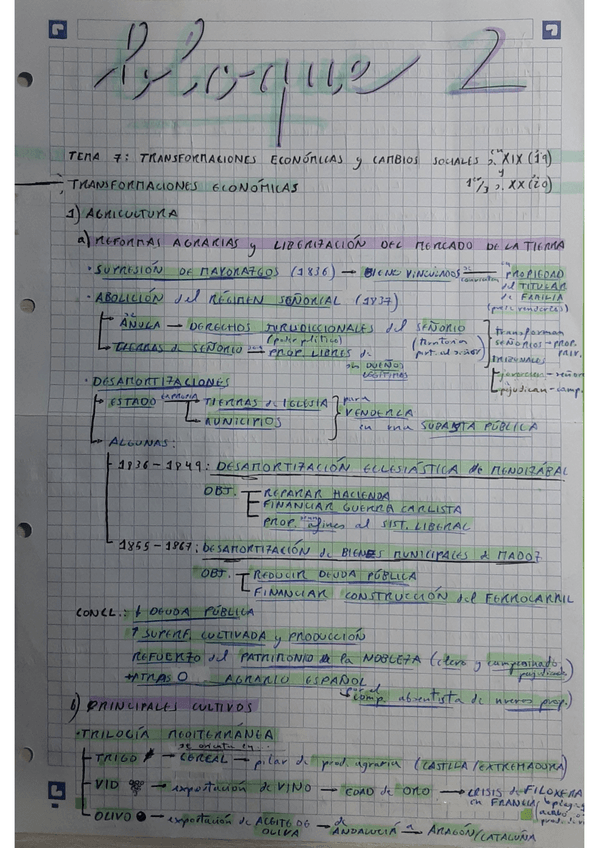 bloque 2
TEMA 7: TRANSFORMACIONES ECONÓMICAS y CAMBIOS SOCIALES en s. XIX (19)
y
TRANSFORMACIONES ECONÓMICAS 1er/3 s. XX (20)
1) AGRICULTURA
a) REFORMAS AGRARIAS y LIBERIZACIÓN DEL MERCADO DE LA TIERRA
· SUPRESIÓN DE MAYORAZGOS (1836) → BIENES VINCULADOS se convierten en PROPIEDAD
del TITULAR
· ABOLICIÓN del RÉGIMEN SEÑORIAL (1837) de FAMILIA
(para venderlos)
se
ANULA — DERECHOS JURISDICCIONALES del SEÑORIO transforman
(poder político) SEÑORIOS → PROP. PRIV.
TIERRAS de SEÑORIO PROP. LIBRES de
sus DUEÑOS TRIBUNALES
LEGÍTIMAS favorecen - señor
perjudican - camp.
· DESAMORTIZACIONES
ESTADO EXPROPIA TIERRAS de IGLESIA para
MUNICIPIOS VENDERLA
en una SUBASTA PÚBLICA
ALGUNAS:
1836 - 1849: DESAMORTIZACIÓN ECLESIÁSTICA de MENDIZÁBAL
OBJ. REPARAR HACIENDA
FINANCIAR GUERRA CARLISTA
PROP. afines al SIST. LIBERAL
1855 - 1867: DESAMORTIZACIÓN de BIENES MUNICIPALES de MADOZ
OBJ. REDUCIR DEUDA PÚBLICA
FINANCIAR CONSTRUCCIÓN del FERROCARRIL
CONCL.: ↓ DEUDA PÚBLICA
↑ SUPERF. CULTIVADA y PRODUCCIÓN
REFUERZO del PATRIMONIO de la NOBLEZA (clero y campesinado perjudicado)
+ ATRASO AGRARIO ESPAÑOL
por el comp. absentista de nuevos prop.)
b) PRINCIPALES CULTIVOS
· TRILOGÍA MEDITERRÁNEA
se orienta en...
TRIGO → CEREAL — pilar de prod. agraria (CASTILLA/EXTREMADURA)
VID → exportación de VINO → EDAD de ORO → CRISIS de FILOXERA
en FRANCIA
OLIVO → exportación de ACEITE DE OLIVA → de ANDALUCÍA a ARAGÓN/CATALUÑA